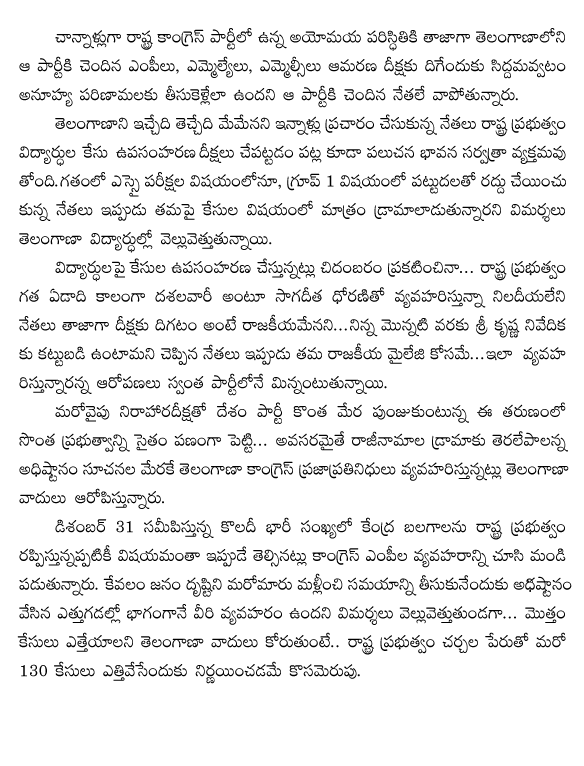 చాన్నాళ్లుగా రాష్ట్ర కాంగ్రెస్ పార్టీలో ఉన్న అయోమయ పరిస్ధితికి తాజాగా తెలంగాణాలోని
ఆ పార్టీకి చెందిన ఎంపీలు, ఎమ్మెల్యేలు, ఎమ్మెల్సీలు ఆమరణ దీక్షకు దిగేందుకు సిద్దమవ్వటం
అనూహ్య పరిణామలకు తీసుకెళ్లేలా ఉందని ఆ పార్టీకి చెందిన నేతలే వాపోతున్నారు.
తెలంగాణాని ఇచ్చేది తెచ్చేది మేమేనని ఇన్నాళ్లు ప్రచారం చేసుకున్న నేతలు రాష్ట్ర ప్రభుత్వం
విద్యార్ధుల కేసు ఉపసంహరణ దీక్షలు చేపట్టడం పట్ల కూడా పలుచన భావన సర్వత్రా వ్యక్తమవు
తోంది.గతంలో ఎస్సై పరీక్షల విషయంలోనూ, గ్రూప్ 1 విషయంలో పట్టుదలతో రద్దు చేయించు
కున్న నేతలు ఇప్పుడు తమపై కేసుల విషయంలో మాత్రం డ్రామాలాడుతున్నారని విమర్శలు
తెలంగాణా విద్యార్ధుల్లో వెల్లువెత్తుతున్నాయి.
విద్యార్ధులపై కేసుల ఉపసంహరణ చేస్తున్నట్లు చిదంబరం ప్రకటించినా... రాష్ట్ర ప్రభుత్వం
గత ఏడాది కాలంగా దశలవారీ అంటూ సాగదీత ధోరణితో వ్యవహరిస్తున్నా నిలదీయలేని
నేతలు తాజాగా దీక్షకు దిగటం అంటే రాజకీయమేనని...నిన్న మొన్నటి వరకు శ్రీ కృష్ణ నివేదిక
కు కట్టుబడి ఉంటామని చెప్పిన నేతలు ఇప్పుడు తమ రాజకీయ మైలేజి కోసమే...ఇలా వ్యవహ
రిస్తున్నారన్న ఆరోపణలు స్వంత పార్టీలోనే మిన్నంటుతున్నాయి.
మరోవైపు నిరాహారదీక్షతో దేశం పార్టీ కొంత మేర పుంజుకుంటున్న ఈ తరుణంలో
సొంత ప్రభుత్వాన్ని సైతం పణంగా పెట్టి... అవసరమైతే రాజీనామాల డ్రామాకు తెరలేపాలన్న
అధిష్టానం సూచనల మేరకే తెలంగాణా కాంగ్రెస్ ప్రజాప్రతినిధులు వ్యవహరిస్తున్నట్లు తెలంగాణా
వాదులు ఆరోపిస్తున్నారు.
డిశంబర్ 31 సమీపిస్తున్న కొలదీ భారీ సంఖ్యలో కేంద్ర బలగాలను రాష్ట్ర ప్రభుత్వం
రప్పిస్తున్నప్పటికీ విషయమంతా ఇప్పుడే తెల్సినట్లు కాంగ్రెస్ ఎంపీల వ్యవహారాన్ని చూసి మండి
పడుతున్నారు. కేవలం జనం దృష్టిని మరోమారు మళ్లించి సమయాన్ని తీసుకునేందుకు అధిష్టానం
వేసిన ఎత్తుగడల్లో భాగంగానే వీరి వ్యవహరం ఉందని విమర్శలు వెల్లువెత్తుతుండగా... మొత్తం
కేసులు ఎత్తేయాలని తెలంగాణా వాదులు కోరుతుంటే.. రాష్ట్ర ప్రభుత్వం చర్చల పేరుతో మరో
130 కేసులు ఎత్తివేసేందుకు నిర్ణయించడమే కొసమెరుపు.